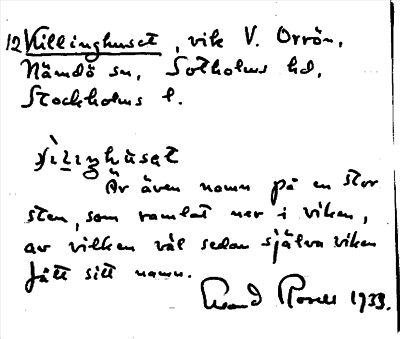 12 Killinghuset, vik V. Orrön,
Nämdö sn, Sotholms hd,
Stockholms l.
Är även namn på en stor
sten, som ramlat ner i viken,
av vilken väl sedan själva viken
fått sitt namn.
1933.